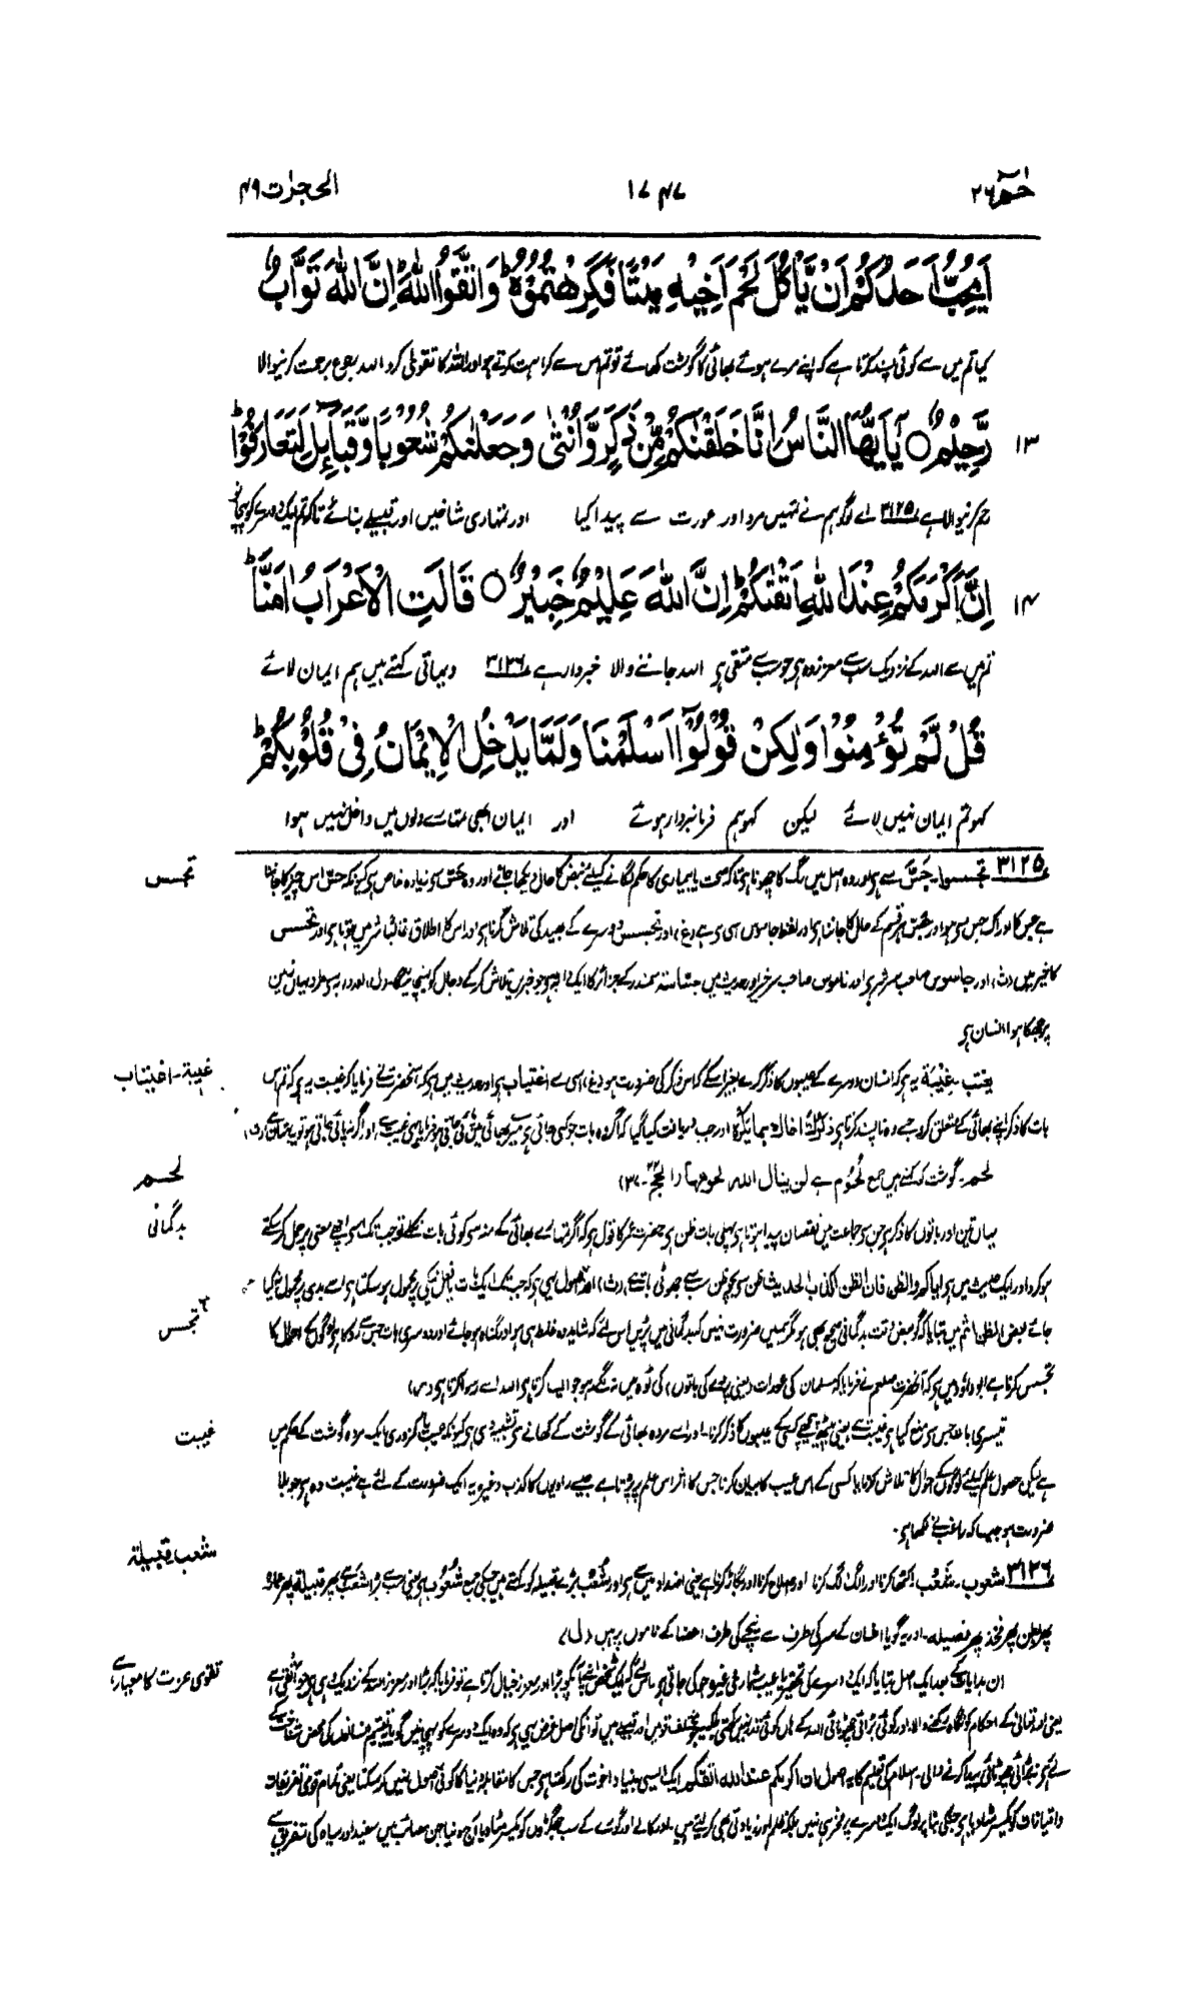 حٰمٓ ٢٦
١٧٤٧
الحجرٰت ٤٩
اَيُحِبُّ اَحَدُكُمْ اَنْ يَّاْكُلَ لَحْمَ اَخِيْهِ مَيْتًا فَكَرِهْتُمُوْهُ ؕ وَاتَّقُوا اللّٰهَ ؕ اِنَّ اللّٰهَ تَوَّابٌ
کیا تم میں سے کوئی پسند کرتا ہے کہ اپنے مرے ہوئے بھائی کا گوشت کھائے تو تم اس سے کراہت کرتے ہو اور اللہ کا تقویٰ کرو اللہ رجوع برحمت کرنیوالا
١٣
رَّحِيْمٌ ○ يٰۤاَيُّهَا النَّاسُ اِنَّا خَلَقْنٰكُمْ مِّنْ ذَكَرٍ وَّاُنْثٰى وَجَعَلْنٰكُمْ شُعُوْبًا وَّقَبَآئِلَ لِتَعَارَفُوْا ؕ
رحم کرنیوالا ہے ٣١٢٥ اے لوگو ہم نے تمہیں مرد اور عورت سے پیدا کیا اور تمہاری شاخیں اور قبیلے بنائے تاکہ تم ایک دوسرے کو پہچانو
١٤
اِنَّ اَكْرَمَكُمْ عِنْدَ اللّٰهِ اَتْقٰىكُمْ ؕ اِنَّ اللّٰهَ عَلِيْمٌ خَبِيْرٌ ○ قَالَتِ الْاَعْرَابُ اٰمَنَّا ؕ
تم میں سے اللہ کے نزدیک سب سے معزز وہ ہے جو سب سے متقی ہے اللہ جاننے والا خبردار ہے ٣١٢٦ دیہاتی کہتے ہیں ہم ایمان لائے
قُلْ لَّمْ تُؤْمِنُوْا وَلٰكِنْ قُوْلُوْۤا اَسْلَمْنَا وَلَمَّا يَدْخُلِ الْاِيْمَانُ فِيْ قُلُوْبِكُمْ ؕ
کہو تم ایمان نہیں لائے لیکن کہو ہم فرمانبردار ہوئے اور ایمان ابھی تمہارے دلوں میں داخل نہیں ہوا
تجسس
٣١٢٥ تجسسوا۔ جَسّ سے ہے اور وہ اصل میں رگ کا چھونا ہے تاکہ صحت یا بیماری کا حکم لگانے کیلئے نبض کا حال دیکھا جائے اور وہ حَسّ سے زیادہ خاص ہے کیونکہ حسّ اس چیز کا جاننا
ہے جس کا ادراک حس سے ہو اور جسّ ہر قسم کے حال کا جاننا ہے اور لفظ جاسوس اسی سے ہے (غ)، اور تجسس دوسرے کے بھید کی تلاش کرنا ہے اور اس کا اطلاق غالباً شر میں ہوتا ہے اور تحسس
کا خیر میں (ث)، اور جاسوس صاحب سر شر ہے اور ناموس صاحب سر خیر اور حدیث میں جسّاسۃ سمندر کے جزائر کا ایک دابہ ہے جو خبریں تلاش کر کے دجال کو پہنچاتا
پر جھکا ہوا انسان ہے
غیبۃ۔ اغتیاب
یغتب۔ غِیْبَۃ یہ ہے کہ انسان دوسرے کے عیبوں کا ذکر کرے بغیر اسکے کہ اس ذکر کی ضرورت ہو (غ)، اسی سے اغتیاب ہے اور حدیث میں ہے کہ آنحضرت نے فرمایا کہ غیبت یہ ہے کہ تم اس
بات کا ذکر اپنے بھائی کے متعلق کرو جسے وہ ناپسند کرتا ہے ذکرک اخاک بما یکرہ اور جب دریافت کیا گیا کہ اگر وہ بات جو کہی جاتی ہے میرے بھائی میں پائی جاتی ہو فرمایا یہی غیبت ہے، اور اگر نہ پائی جاتی ہو تو یہ بہتان ہے (ث)،
لحم
لحم۔ گوشت کو کہتے ہیں جمع لُحُوم ہے لن ینال اللہ لحومھا (الحج۔ ٣٧)
بدگمانی
یہاں تین اور باتوں کا ذکر ہے جن سے جماعت میں نقصان پیدا ہوتا ہے پہلی بات ظن ہے حضرت عمر کا قول ہے کہ اگر تمہارے بھائی کے منہ سے کوئی بات نکلے تو جب تک اسے اچھے معنی پر حمل کر سکتے
ہو کرو اور ایک حدیث میں ہے ایاکم والظن فان الظن اکذب الحدیث ظن سے بچو ظن سب سے جھوٹی بات ہے (ث)، اور اصول یہی ہے کہ جب تک ایک بات یا فعل نیکی پر محمول ہو سکتا ہے اسے بدی پر محمول نہ کیا
تجسس
جائے بعض الظن اثم میں بتایا کہ گو بعض وقت بدگمانی صحیح بھی ہو مگر تمہیں ضرورت نہیں کہ بدگمانی میں پڑو اس لئے کہ شاید وہ غلط ہی ہو اور گناہ ہو جائے اور دوسری بات جس سے روکا ہے لوگوں کے احوال کا
تجسس کرنا ہے ابو داؤد میں ہے کہ آنحضرت صلعم نے فرمایا کہ مسلمان کی عورات (یعنی پردے کی باتوں) کی ٹوہ میں نہ لگے رہو جو ایسا کرتا ہے اللہ اسے رسوا کرتا ہے (س)
غیبت
تیسری بات جس سے منع کیا ہے غیبت ہے یعنی پیٹھ پیچھے کسی کے عیبوں کا ذکر کرنا۔ اور اسے مردہ بھائی کے گوشت کے کھانے سے تشبیہ دی ہے کیونکہ عیب یا کمزوری ایک مردہ گوشت کے حکم میں
ہے لیکن حصول علم کیلئے لوگوں کے احوال کا تلاش کرنا یا کسی کے اس عیب کا بیان کرنا جس کا اثر اس علم پر پڑتا ہے جیسے راویوں کا کذب وغیرہ یہ ایک ضرورت کے لئے ہے غیبت وہ ہے جو بلا
ضرورت ہو جیسا کہ راغب نے لکھا ہے۔
شعب قبیلۃ
٣١٢٦ شعوب۔ شَعْب اکٹھا کرنا اور الگ الگ کرنا اور اصلاح کرنا اور بگاڑ کرنا ہے یعنی اضداد میں سے ہے اور شَعْب بڑے قبیلہ کو کہتے ہیں جسکی جمع شُعُوب ہے یعنی سب سے بڑا شعب ہے پھر قبیلۃ پھر عمارۃ
پھر بطن پھر فخذ پھر فصیلہ۔ اور یہ گویا انسان کے سر کی طرف سے نیچے کی طرف اعضا کے ناموں پر ہیں (ل)
تقویٰ عزت کا معیار ہے
ان ہدایات کے بعد ایک اصل بتایا کہ ایک دوسرے کی تحقیر یا عیب شماری غیرہ جو کی جاتی ہے اس لئے کہ ایک شخص اپنے آپ کو بڑا اور معزز خیال کرتا ہے تو فرمایا کہ بڑا اور معزز اللہ کے نزدیک وہی ہے جو اتقیٰ ہے
یعنی اللہ تعالیٰ کے احکام کو نگاہ رکھنے والا اور کوئی بڑائی چھوٹائی اللہ کے ہاں کوئی قدر نہیں رکھتی مختلف قومیں اور قبیلے ہیں تو انکی اصل غرض یہی ہے کہ وہ ایک دوسرے کو پہچانیں گویا یہ تقسیم انسانوں کی محض شناخت کے
لئے ہے نہ بڑائی چھوٹائی پیدا کرنے والی۔ اسلام کی تعلیم کا یہ اصول ان اکرمکم عند اللہ اتقٰکم ایک ایسی بنیاد اخوت کی رکھتا ہے جس کا مقابلہ دنیا کا کوئی اصول نہیں کر سکتا یعنی تمام قومی تفریقات
و امتیازات کو یکسر مٹا دیا ہے جنکی بنا پر لوگ ایک دوسرے پر فخر ہی نہیں بلکہ ظلم اور زیادتی بھی کر لیتے ہیں۔ اور کالے اور گورے کے سب جھگڑوں کو یکسر مٹا دیا آج دنیا جن مصائب میں سفید اور سیاہ کی تفریق سے